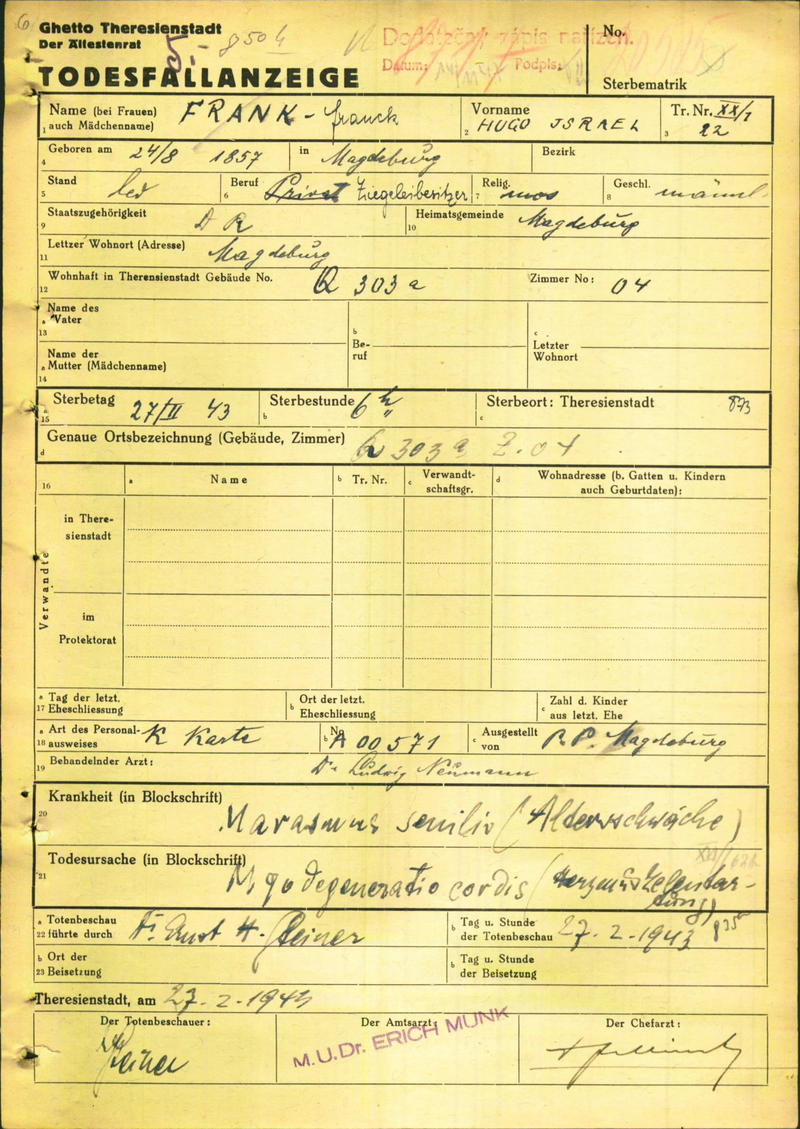 6
Ghetto Theresienstadt
Der Ältestenrat
8504
Dodatečný zápis nařízen.
Datum: Podpis:
No.
TODESFALLANZEIGE
Sterbematrik
Name (bei Frauen) auch Mädchenname) 1 FRANK - Franck
Vorname 2 HUGO ISRAEL
Tr. Nr. XX/1 3 22
Geboren am 4 24/8 1857 in Magdeburg Bezirk
Stand 5 led Beruf 6 Privat Ziegeleibesitzer Relig. 7 mos Geschl. 8 männl
Staatszugehörigkeit 9 D R Heimatsgemeinde 10 Magdeburg
Lettzer Wohnort (Adresse) 11 Magdeburg
Wohnhaft in Therensienstadt Gebäude No. 12 Q 303 a Zimmer No: 04
Name des
a Vater
13
b Be-
ruf
c Letzter
Wohnort
Name der
a Mutter (Mädchenname)
14
a 15 Sterbetag 27/II 43 b Sterbestunde 6 h c Sterbeort: Theresienstadt 873
d Genaue Ortsbezeichnung (Gebäude, Zimmer) Q 303 a Z. 04
16 a Name b Tr. Nr. c Verwandt-
schaftsgr. d Wohnadresse (b. Gatten u. Kindern
auch Geburtdaten):
Verwandte
in There-
sienstadt
im
Protektorat
a 17 Tag der letzt.
Eheschliessung
b Ort der letzt.
Eheschliessung
c Zahl d. Kinder
aus letzt. Ehe
a 18 Art des Personal-
ausweises K Karte b No A 00571 c Ausgestellt
von P. P. Magdeburg
19 Behandelnder Arzt: Dr Ludwig Neumann
20 Krankheit (in Blockschrift)
Marasmus senilis (Altersschwäche)
21 Todesursache (in Blockschrift)
Myodegeneratio cordis (Herzmuskelentar-
tung)
a 22 Totenbeschau
führte durch Dr. Ernst H. Steiner b Tag u. Stunde
der Totenbeschau 27. 2. 1943 8 35
b 23 Ort der
Beisetzung
b Tag u. Stunde
der Beisetzung
Theresienstadt, am 27. 2. 1943
Der Totenbeschauer: Der Amtsarzt: Der Chefarzt:
Steiner
M.U.Dr. ERICH MUNK